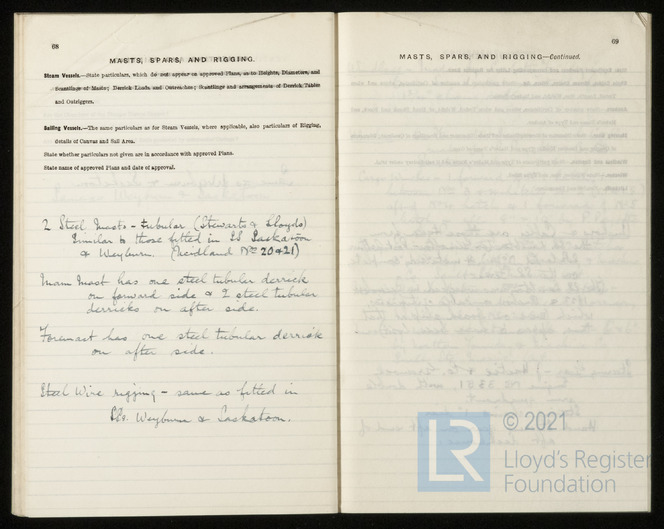 68
MASTS, SPARS, AND RIGGING.
Steam Vessels.—State particulars, which do not appear on approved Plans, as to Heights, Diameters, and
Scantlings of Masts; Derrick Loads and Outreaches; Scantlings and arrangements of Derrick Tables
and Outriggers.
Sailing Vessels.—The same particulars as for Steam Vessels, where applicable, also particulars of Rigging,
details of Canvas and Sail Area.
State whether particulars not given are in accordance with approved Plans.
State name of approved Plans and date of approval.
2 Steel Masts - tubular (Stewarts & Lloyds)
Similar to those fitted in SS Saskatoon
& Weyburn (Midland Nos 20 & 21)
Main Mast has one steel tubular derrick
on forward side & 2 steel tubular
derricks on after side.
Foremast has one steel tubular derrick
on after side.
Steel Wire rigging - same as fitted in
Weyburn & Saskatoon.
69
MASTS, SPARS, AND RIGGING—Continued.
LR
© 2021
Lloyd's Register
Foundation